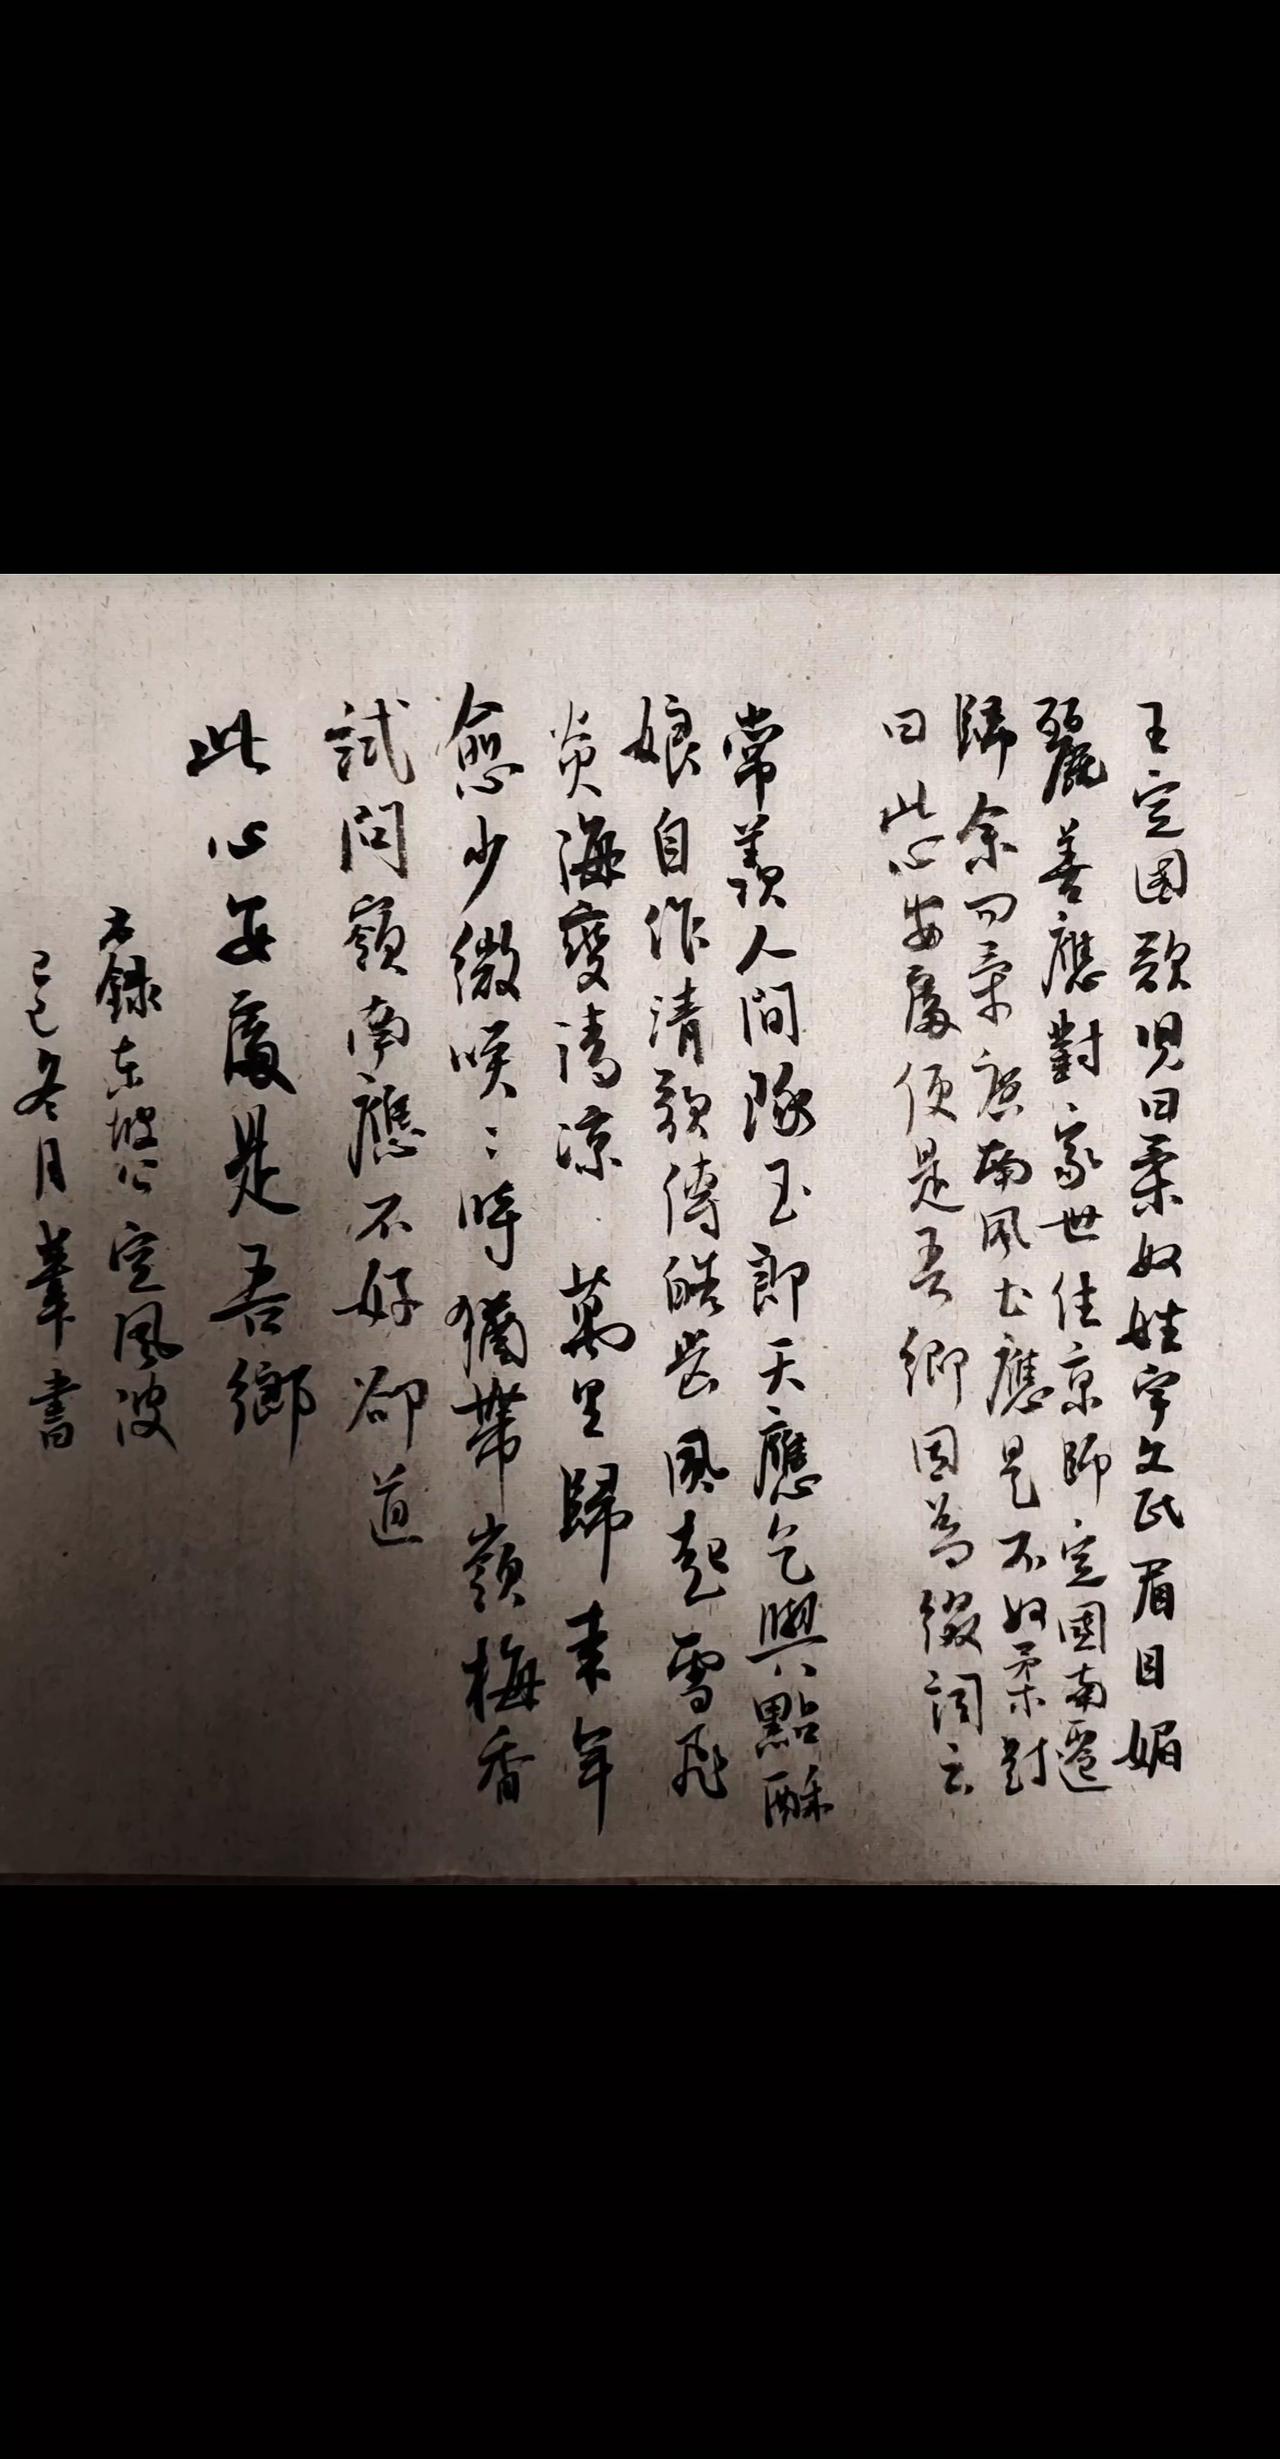 王定國歌児曰柔奴姓宇文氏眉目媚
麗善應對家世住京師定國南遷
歸余问柔廣南風土應是不好柔對
曰此心安處便是吾鄉因為綴詞云
常羨人間琢玉郎天應乞與點酥
娘自作清歌傳皓齿風起雪飛
炎海變清涼萬里歸来年
愈少微笑〻時猶帶嶺梅香
試問嶺南應不好卻道
此心安處是吾鄉
右録东坡公定風波
己巳冬月 書